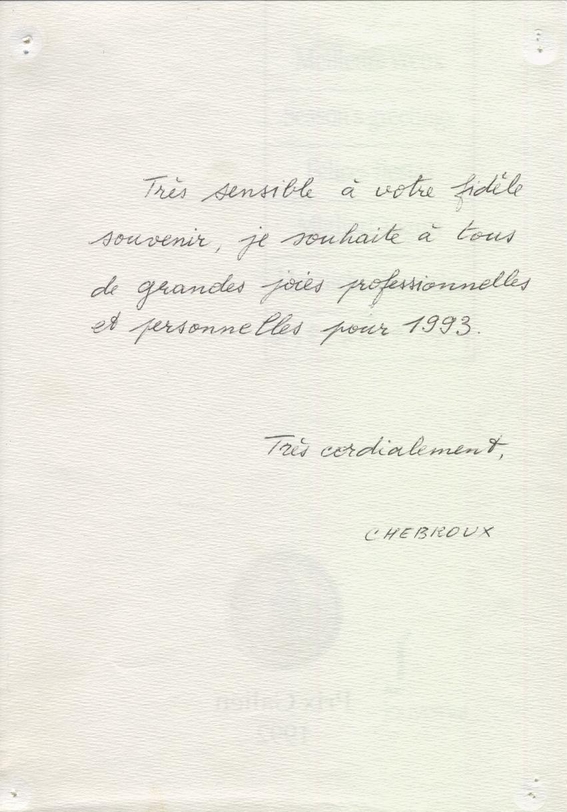 Très sensible à votre fidèle
souvenir, je souhaite à tous
de grandes joies professionnelles
et personnelles pour 1993.
Très cordialement,
CHEBROUX
Prix Galien
1992